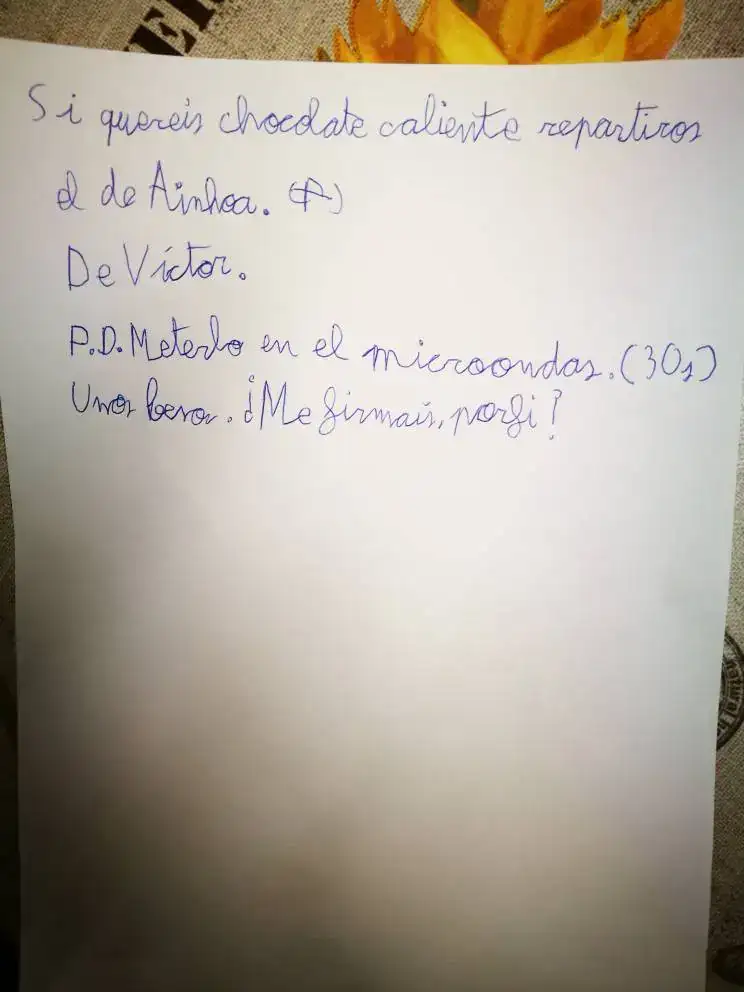 ER
Si quereis chocolate caliente repartiros
el de Ainhoa. (A)
De Víctor.
P.D. Meterlo en el microondas. (30s)
Unos besos. ¿Me firmais, porfi?